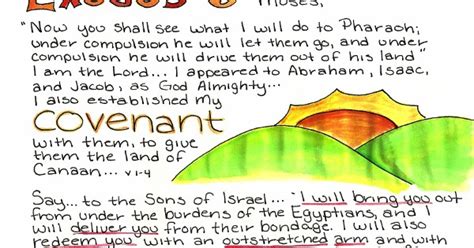 Exodus 6
Moses,
"Now you shall see what I will do to Pharaoh;
under compulsion he will let them go, and under
compulsion he will drive them out of his land"
I am the Lord... I appeared to Abraham, Isaac,
and Jacob, as God Almighty...
I also established my
COVENANT
with them, to give
them the land of
Canaan... v1-4
Say... to the Sons of Israel... "I will bring you out
from under the burdens of the Egyptians, and I
will deliver you from their bondage. I will also
redeem you with an outstretched arm and with